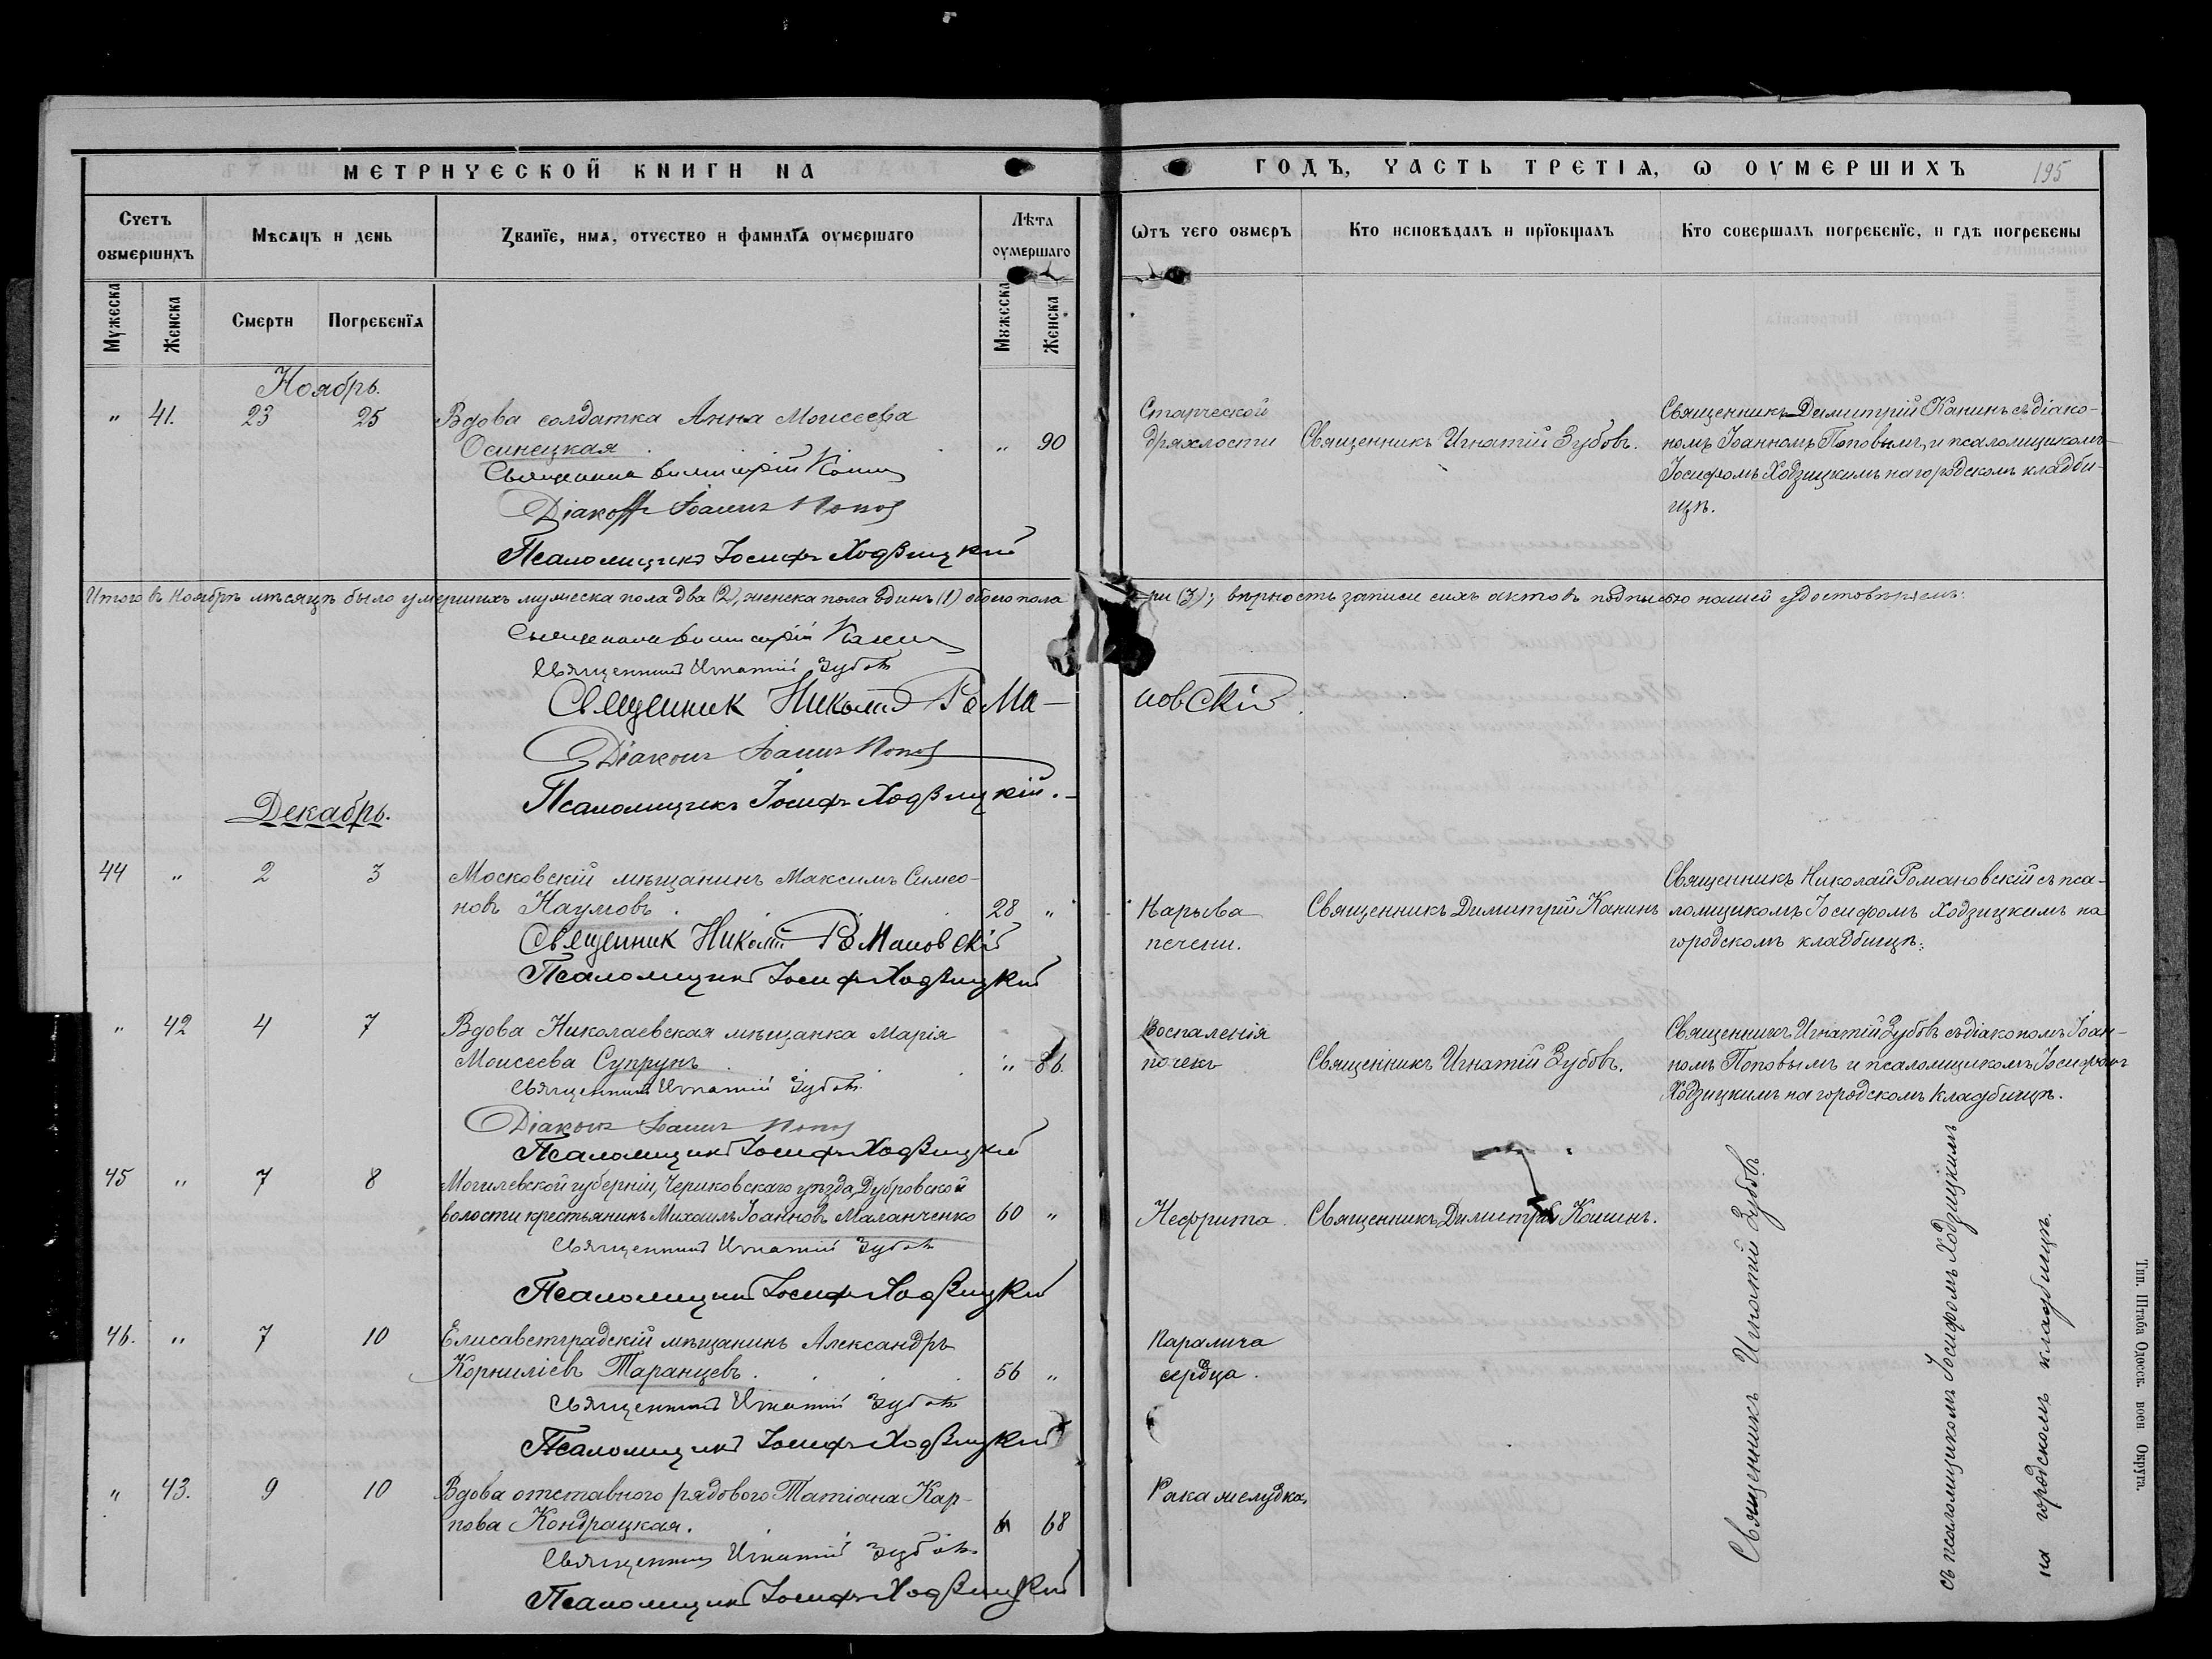 МЕТРИЧЕСКОЙ КНИГИ НА
ГОДЪ, ЧАСТЬ ТРЕТІѦ, Ѡ ОУМЕРШИХЪ
195
Счетъ оумершихъ
Мѣсѧцъ и день
Званїе, имѧ, отчество и фамилїѧ оумершаго
Лѣта оумершаго
Отъ чего оумеръ
Кто исповѣдалъ и прїобщалъ
Кто совершалъ погребенїе, и гдѣ погребены
Мужеска
Женска
Смерти
Погребенїѧ
Мужеска
Женска
Ноябрь.
„ 41. 23 25 Вдова солдатка Анна Моисеева
Осинецкая „ 90
Старческой
дряхлости
Священникъ Игнатій Зубовъ.
Священникъ Димитрій Канинъ съ діако-
номъ Іоанномъ Поповымъ, и псаломщикомъ
Іосифомъ Ходзицкимъ на городскомъ кладби-
щѣ.
Священникъ Димитрій Канин
Діаконъ Іоаннъ Попов
Псаломщикъ Іосифъ Ходзицкій
Итого въ Ноябрѣ мѣсяцѣ было умершихъ мужеска пола два (2), женска пола одинъ (1) обоего пола
три (3); вѣрность записи сихъ актовъ подписью нашей удостовѣряемъ:
Священникъ Димитрій Канин
Священникъ Игнатій Зубовъ
Священник Николай Романовскій
Діаконъ Іоаннъ Попов
Псаломщикъ Іосифъ Ходзицкій.
Декабрь.
44 „ 2 3 Московскій мѣщанинъ Максимъ Симео-
новъ Наумовъ. 28 „
Нарыва
печени.
Священникъ Димитрій Канинъ
Священникъ Николай Романовскій съ пса-
ломщикомъ Іосифомъ Ходзицкимъ на
городскомъ кладбищѣ.
Священник Николай Романовскій
Псаломщикъ Іосифъ Ходзицкій
„ 42 4 7 Вдова Николаевская мѣщанка Марія
Моисеева Супрунъ „ 86.
Воспаленія
почекъ
Священникъ Игнатій Зубовъ.
Священникъ Игнатій Зубовъ съ діакономъ Іоан-
номъ Поповымъ и псаломщикомъ Іосифомъ
Ходзицкимъ на городскомъ кладбищѣ.
Священникъ Игнатій Зубовъ
Діаконъ Іоаннъ Попов
Псаломщикъ Іосифъ Ходзицкій
45 „ 7 8 Могилевской губерніи, Чериковскаго уѣзда, Дубровской
волости крестьянинъ Михаилъ Іоанновъ Маланченко 60 „
Нефрита
Священникъ Димитрій Канинъ.
Священникъ Игнатій Зубовъ
Псаломщикъ Іосифъ Ходзицкій
46. „ 7 10 Елисаветградскій мѣщанинъ Александръ
Корниліевъ Таранцевъ. 56 „
Паралича
сердца.
Священникъ Игнатій Зубовъ
Псаломщикъ Іосифъ Ходзицкій
„ 43. 9 10 Вдова отставного рядового Татіана Кар-
пова Кондрацкая. 68
Рака желудка.
Священникъ Игнатій Зубовъ
Псаломщикъ Іосифъ Ходзицкій
Священникъ Игнатій Зубовъ
съ псаломщикомъ Іосифомъ Ходзицкимъ
на городскомъ кладбищѣ.
Тип. Штаба Одесск. воен Округа.